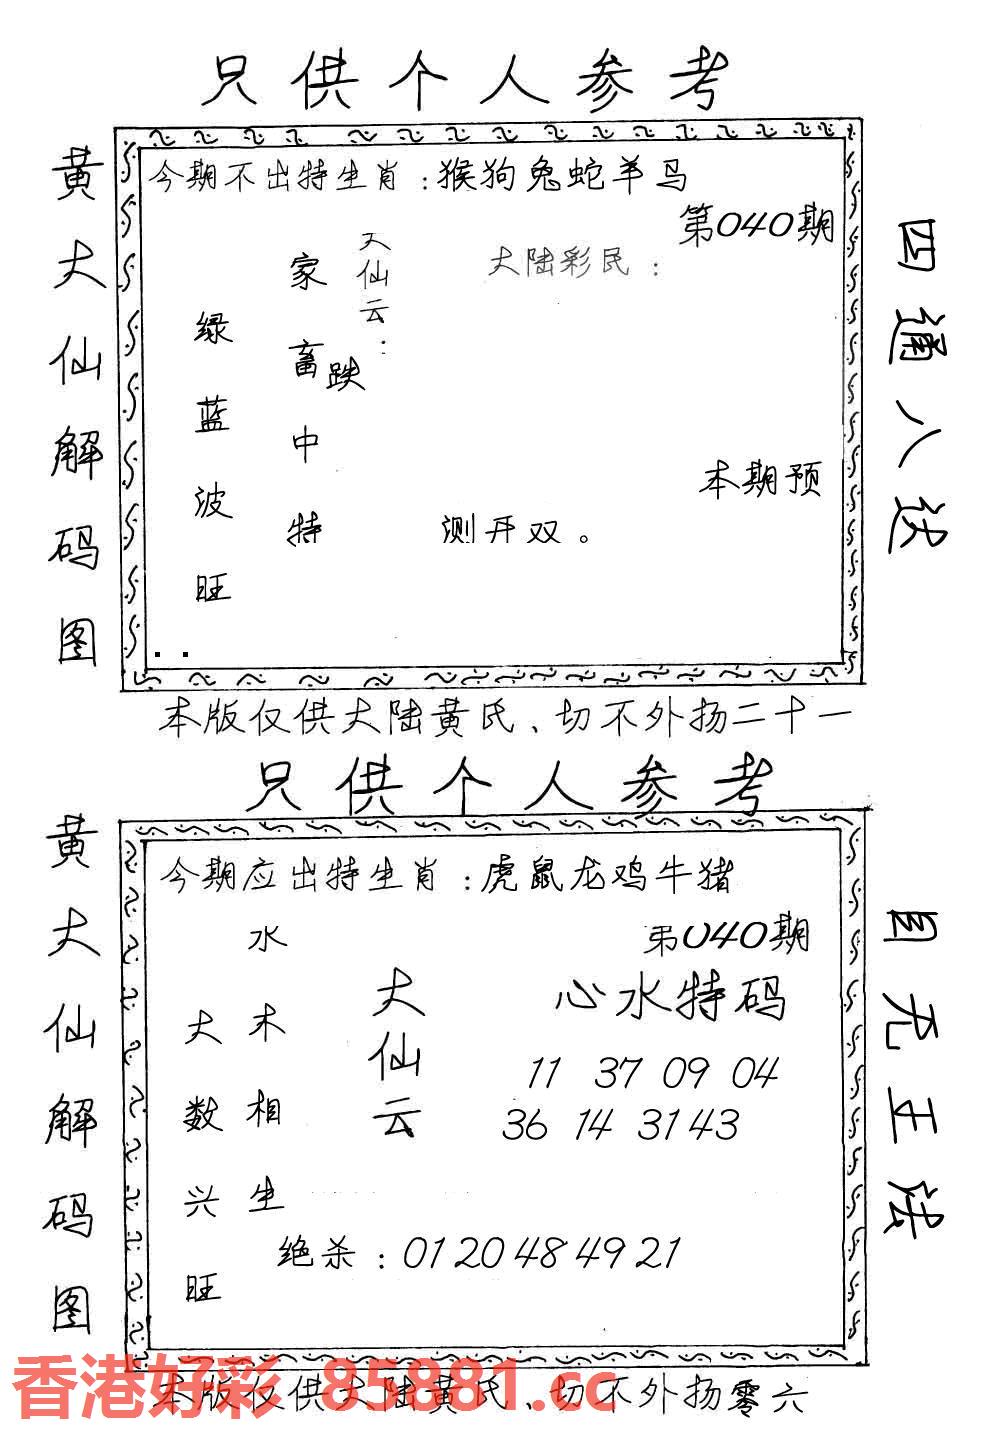 只供个人参考
黄大仙解码图
今期不出特生肖：猴狗兔蛇羊马
第040期
四通八达
大陆彩民：
大仙云：
家畜中特
跌
绿蓝波旺
本期预
测开双。
本版仅供大陆黄氏、切不外扬二十一
只供个人参考
黄大仙解码图
今期应出特生肖：虎鼠龙鸡牛猪
第040期
自无王法
水木相生
大数兴旺
大仙云
心水特码
11 37 09 04
36 14 31 43
绝杀：01 20 48 49 21
香港好彩 85881.cc
本版仅供大陆黄氏、切不外扬零六